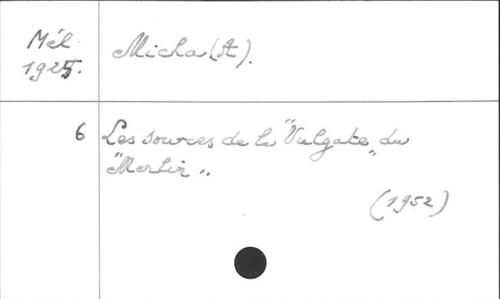 Mél.
1925.
Micha (A).
6 Les sources de la "Vulgate" du
"Merlin".
(1952)